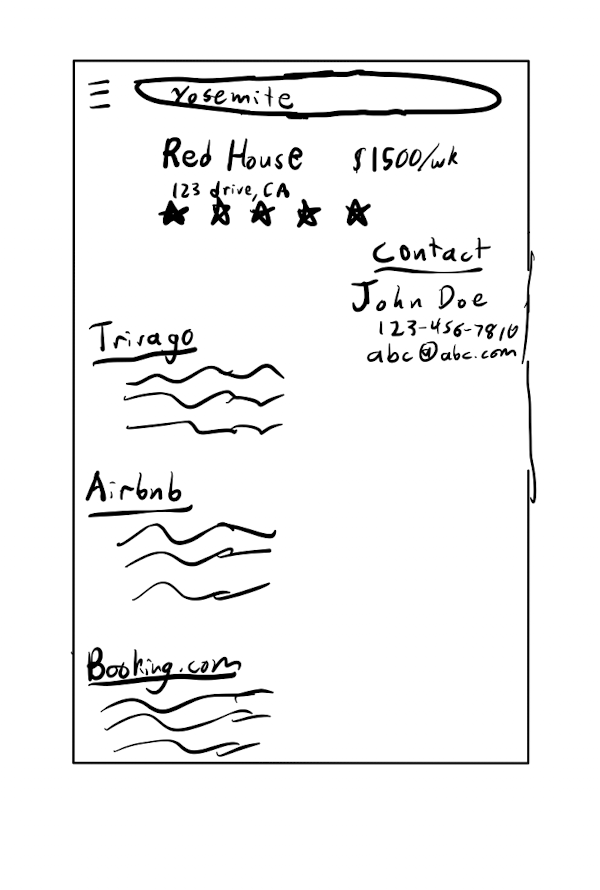 Yosemite
Red House $1500/wk
123 drive, CA
Contact
John Doe
123-456-7810
abc@abc.com
Trivago
Airbnb
Booking.com